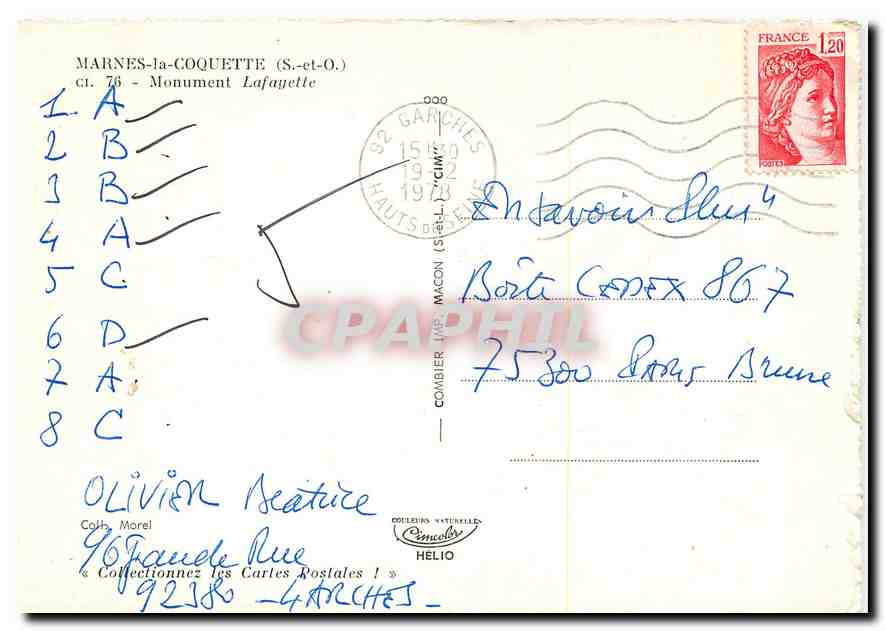 MARNES-la-COQUETTE (S.-et-O.)
CI. 76 - Monument Lafayette
1. A
2 B
3 B
4 A
5 C
6 D
7 A.
8 C
OLIVIER Beatrice
Coll. Morel
96 Grande Rue
« Collectionnez les Cartes Postales ! »
92380 - GARCHES -
COMBIER IMP. MACON (S.-et-L.) "CIM"
COULEURS NATURELLES
Cimcolor
HÉLIO
92 GARCHES
15H30
19-12
1978
HAUTS DE SEINE
FRANCE 1,20
POSTES
En savoir Plus"
Boîte CEDEX 867
75300 PARIS Brune
CPAPHIL